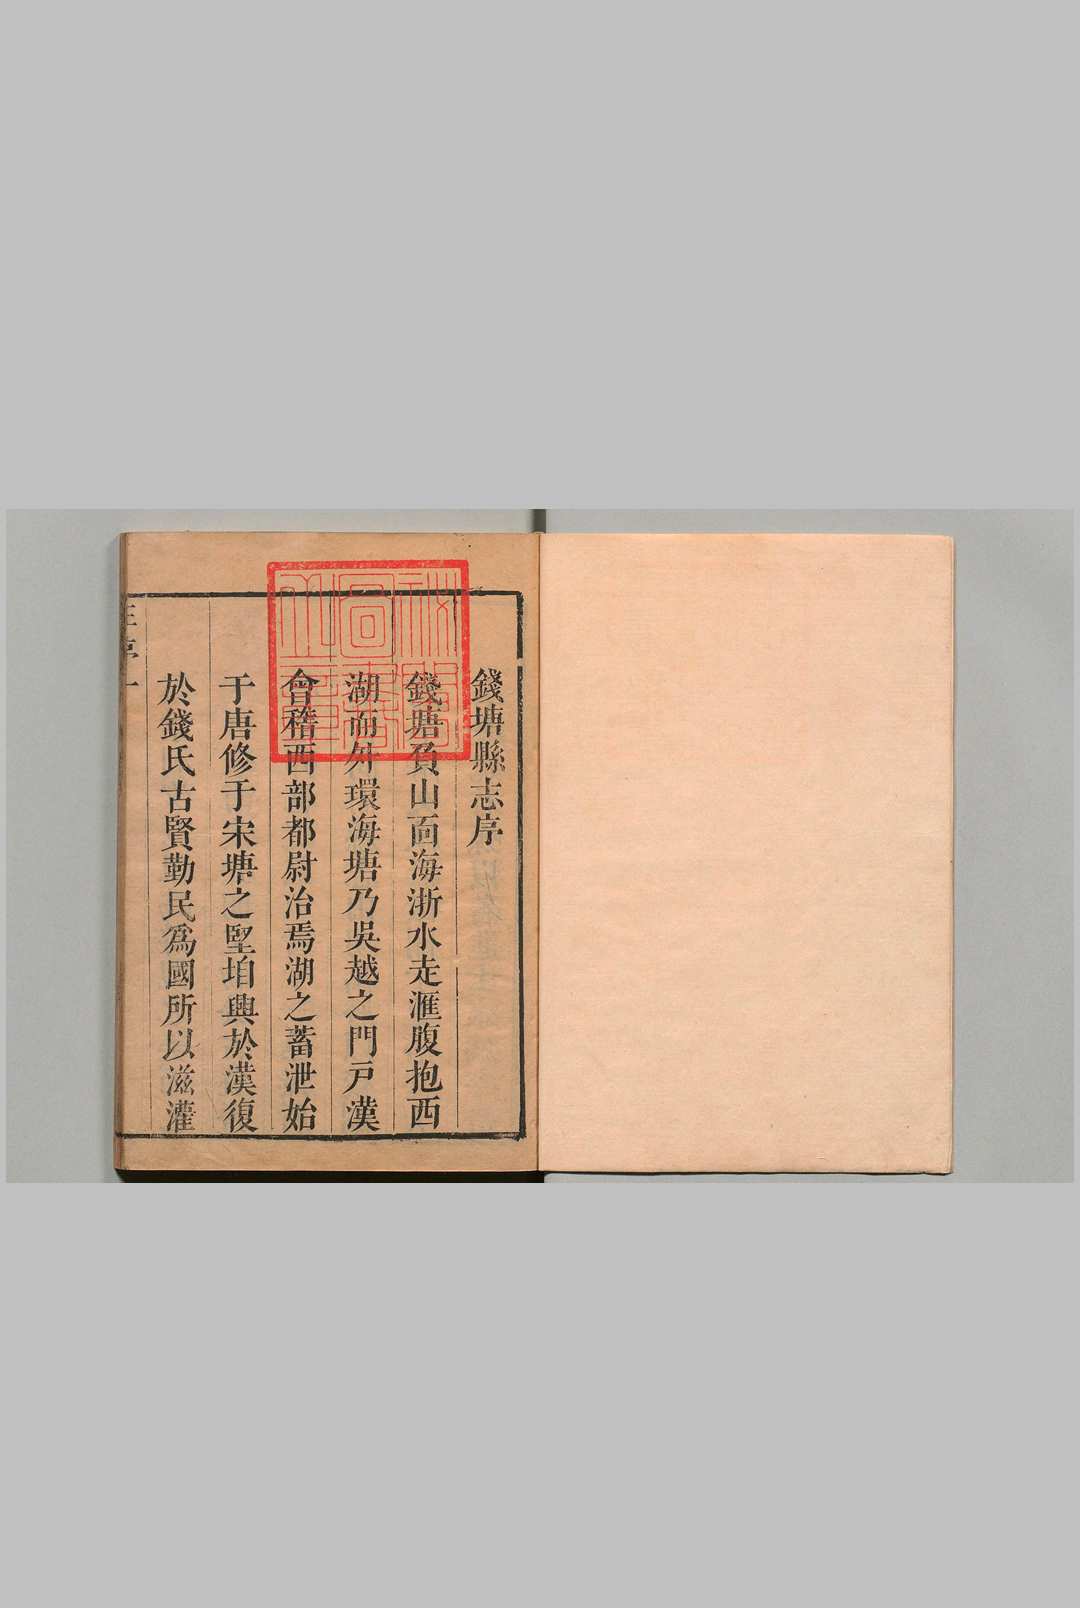 錢塘縣志序
錢塘負山面海浙水走滙腹抱西
湖而外環海塘乃吳越之門戸漢
會稽西部都尉治焉湖之蓄泄始
于唐修于宋塘之堅垍興於漢復
於錢氏古賢勤民爲國所以滋灌